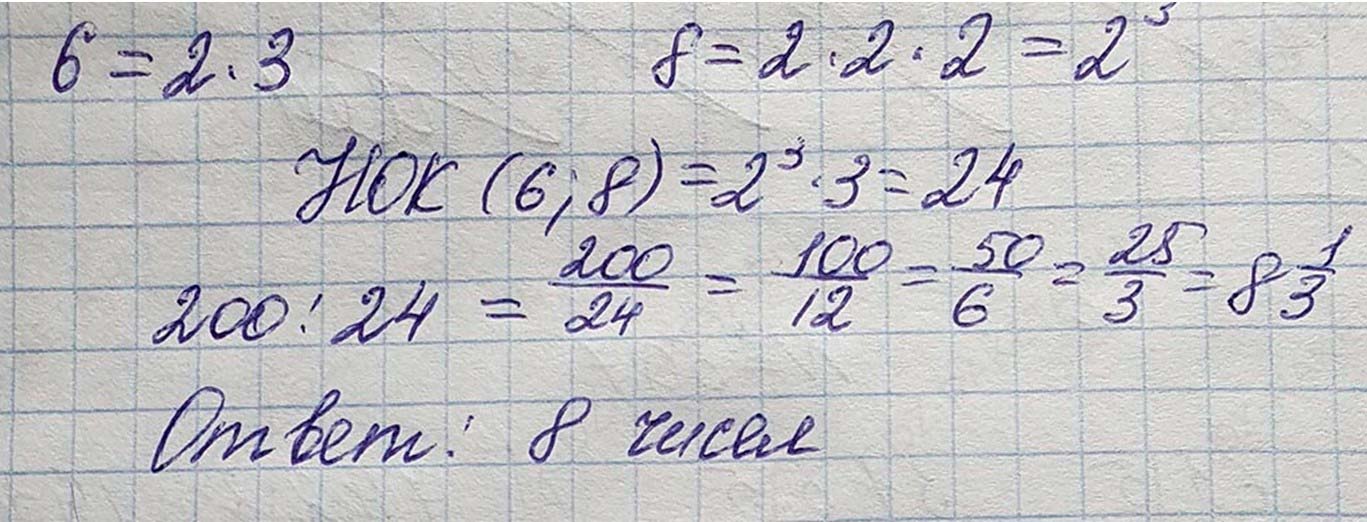 6 = 2 · 3    8 = 2 · 2 · 2 = 2³
НОК (6; 8) = 2³ · 3 = 24
200 : 24 = 200/24 = 100/12 = 50/6 = 25/3 = 8 1/3
Ответ: 8 чисел